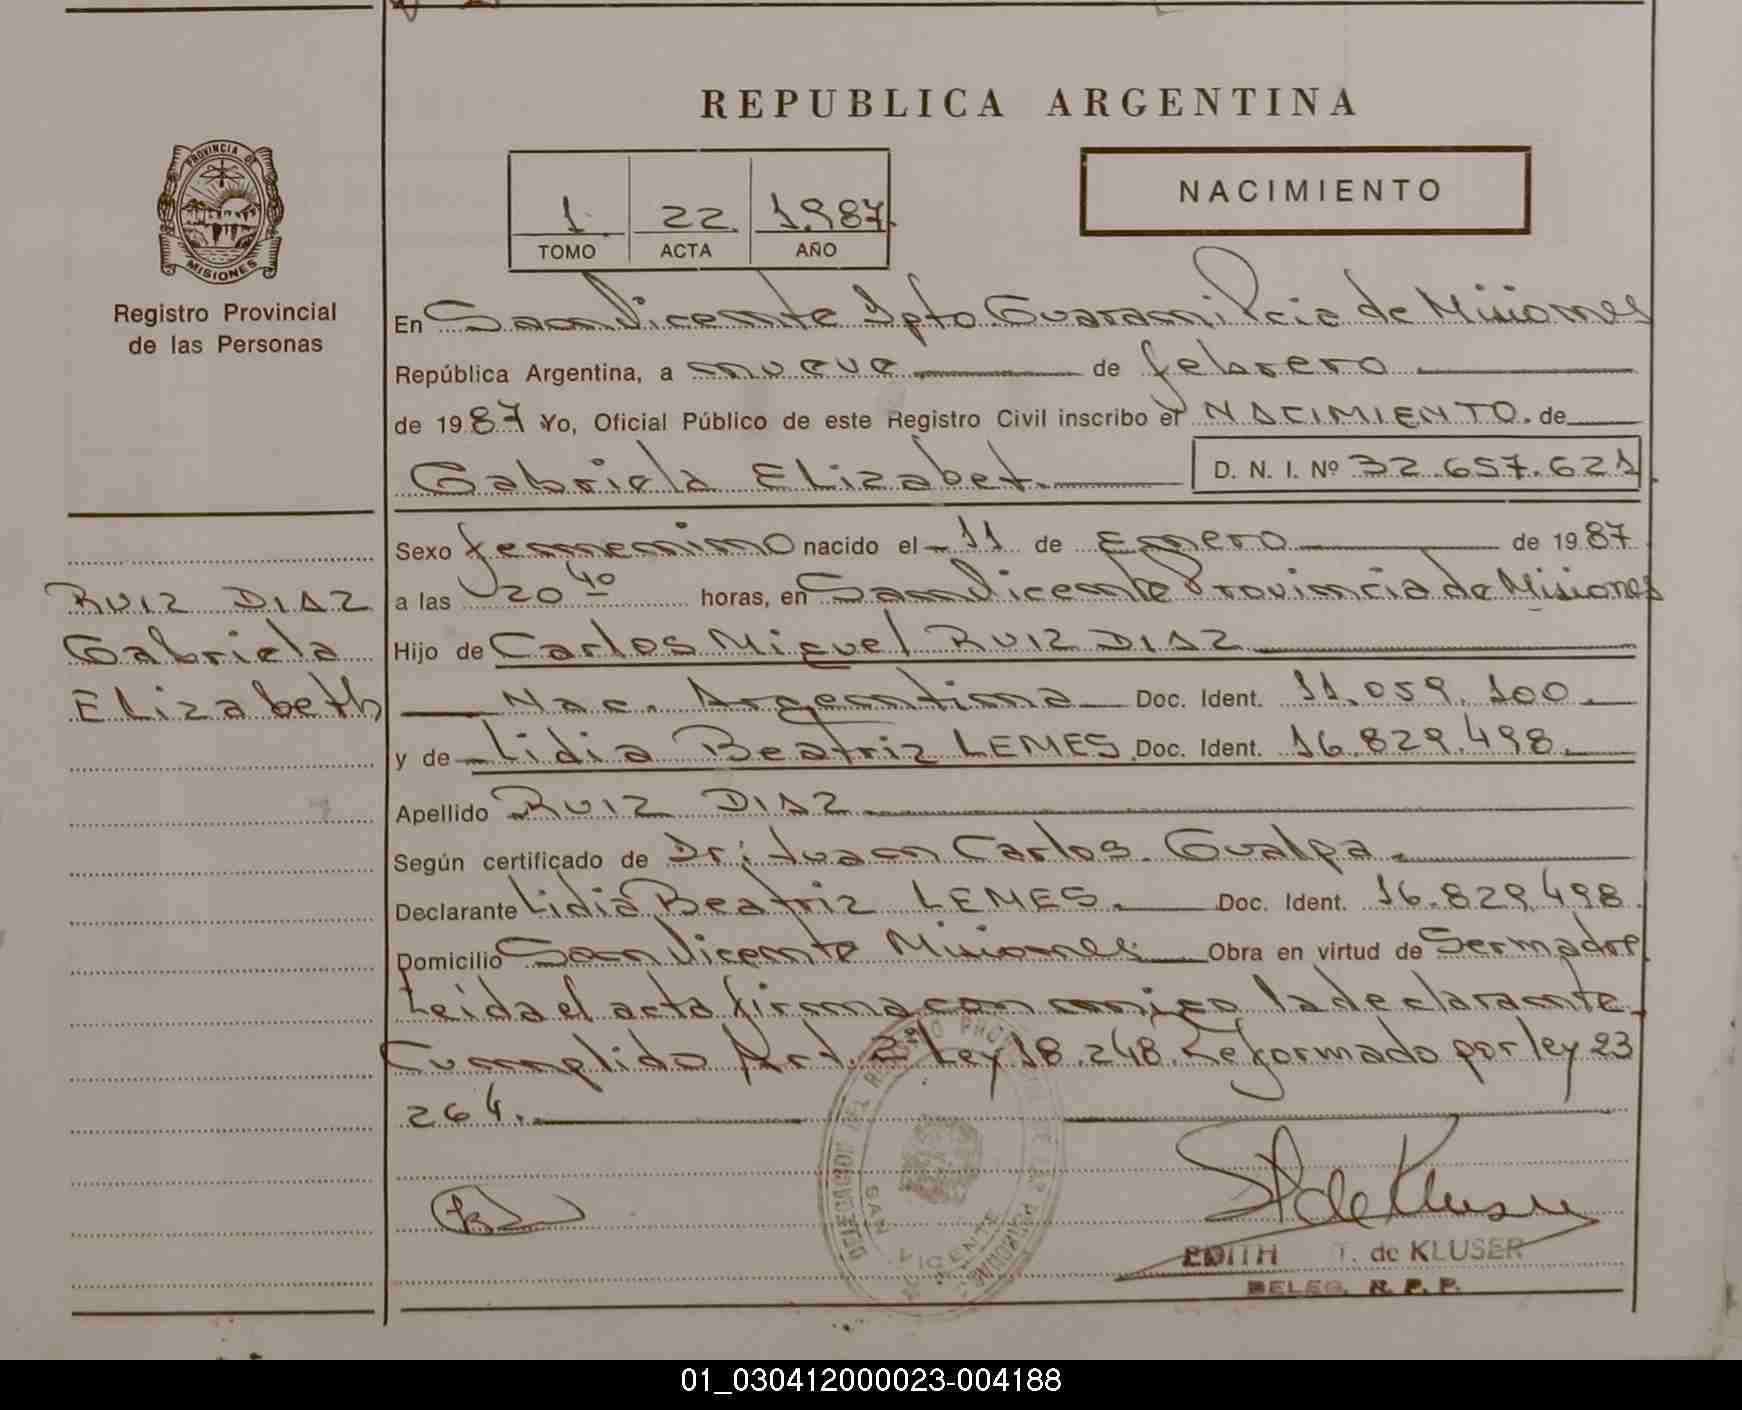 REPUBLICA ARGENTINA
PROVINCIA DE
MISIONES
Registro Provincial
de las Personas
1. 22. 1.987.
TOMO ACTA AÑO
NACIMIENTO
En San Vicente Dpto Guarani Pcia de Misiones
República Argentina, a nueve de febrero
de 1987 Yo, Oficial Público de este Registro Civil inscribo el NACIMIENTO. de
Gabriela Elizabet. D. N. I. Nº 32.657.621.
Sexo femenino nacido el 11 de Enero de 1987
a las 20 40 horas, en San Vicente Provincia de Misiones
RUIZ DIAZ
Gabriela
Elizabeth
Hijo de Carlos Miguel RUIZ DIAZ
Nac. Argentina Doc. Ident. 11.059.100.
y de Lidia Beatriz LEMES. Doc. Ident. 16.829.498.
Apellido RUIZ DIAZ
Según certificado de Dr: Juan Carlos Gualpa.
Declarante Lidia Beatriz LEMES. Doc. Ident. 16.829.498.
Domicilio San Vicente Misiones. Obra en virtud de Ser madre.
Leida el acta firma con migo la declarante.
Cumplido Art. 2º Ley 18.248. Reformado por ley 23
264.
DELEGACION DEL REGISTRO PROVINCIAL DE LAS PERSONAS
SAN VICENTE
EDITH T. de KLUSER
DELEG. R. P. P.
01_030412000023-004188